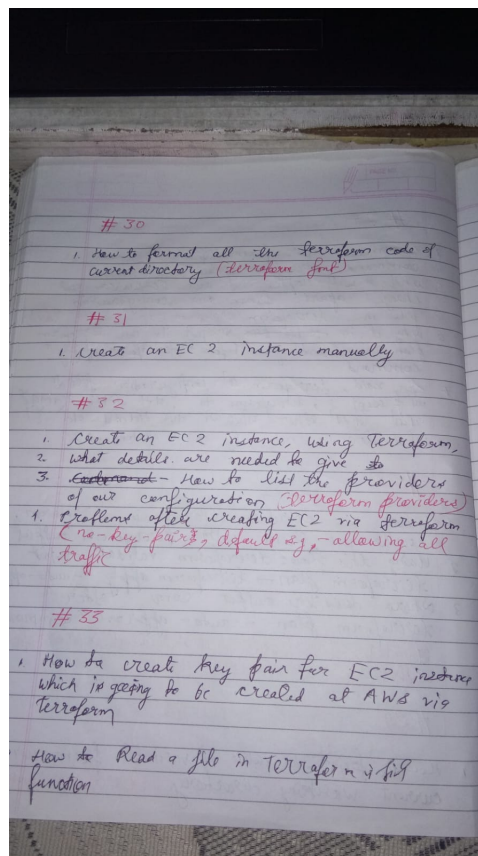 # 30
1. How to format all the terraform code of
current directory (terraform fmt)
# 31
1. Create an EC2 instance manually
# 32
1. Create an EC2 instance, using Terraform,
2. What details are needed to give to
3. How to list the providers
of our configuration (terraform providers)
4. Problems after creating EC2 via terraform
(no-key-pairs, default sg, - allowing all
traffic
# 33
How to create key pair for EC2 instance
which is going to be created at AWS via
terraform
How to Read a file in Terraform
function